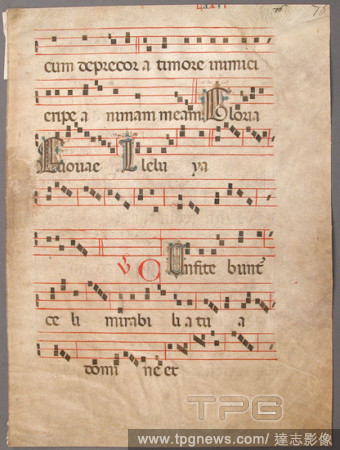 Lxxvi
76
7
cum deprecor a timore inimici
eripe a nimam meam Gloria
Euouae lle lu ya
℣ COnfite bunt
ce li mirabi li a tu a
domi ne et
TPG
www.tpgnews.com/達志影像